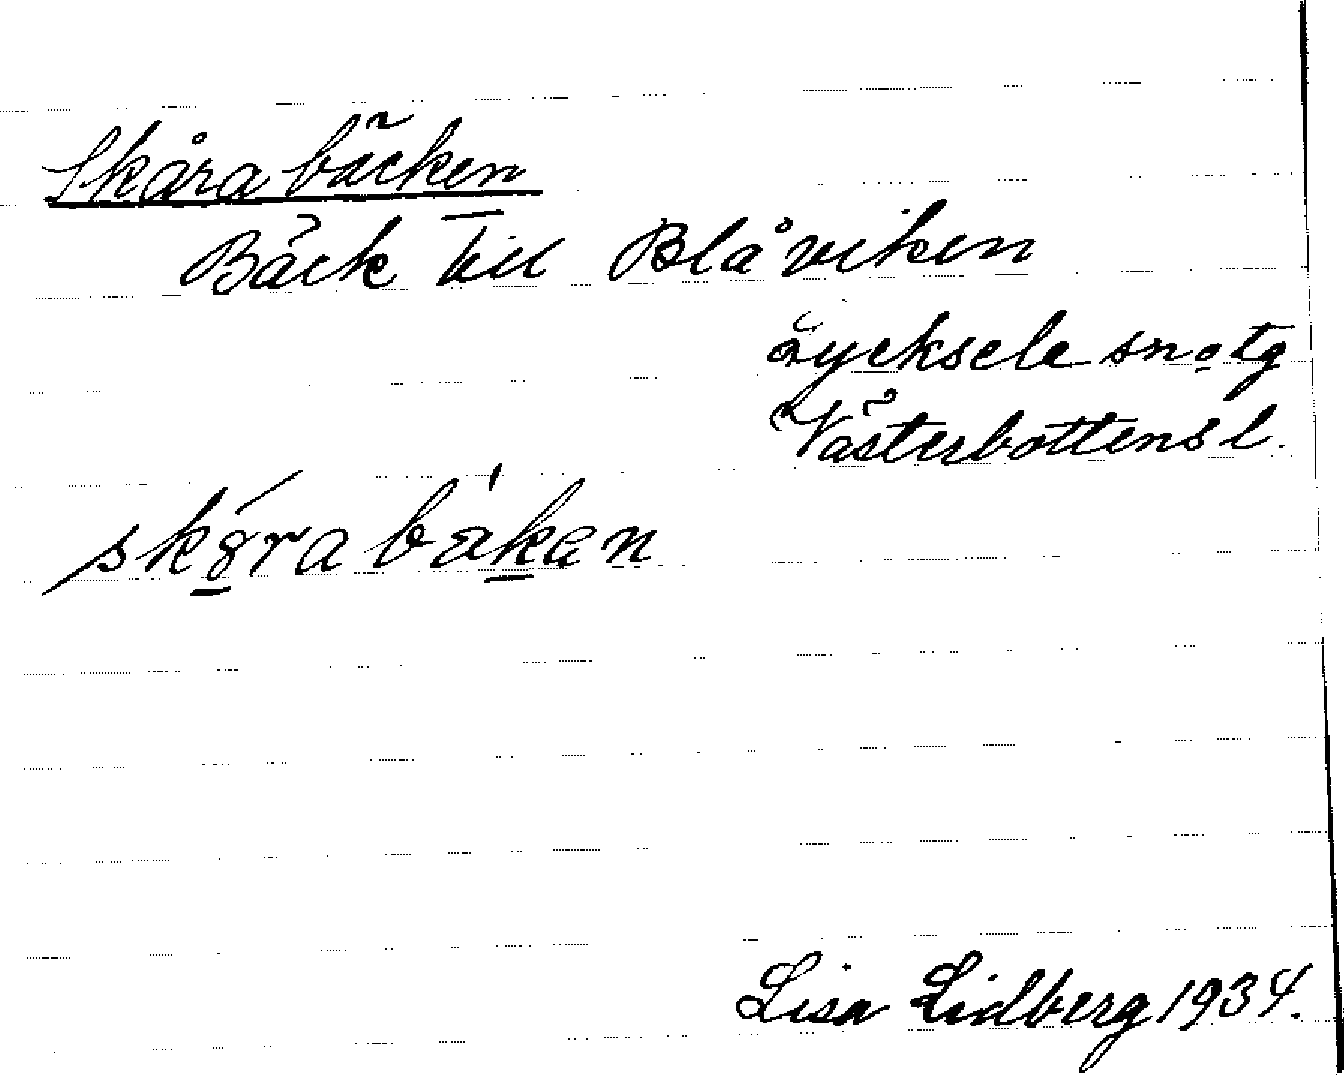 Skårabäcken
Bäck till Blåviken
Lycksele sn o tg
Västerbottens l.
Lisa Lidberg 1934.